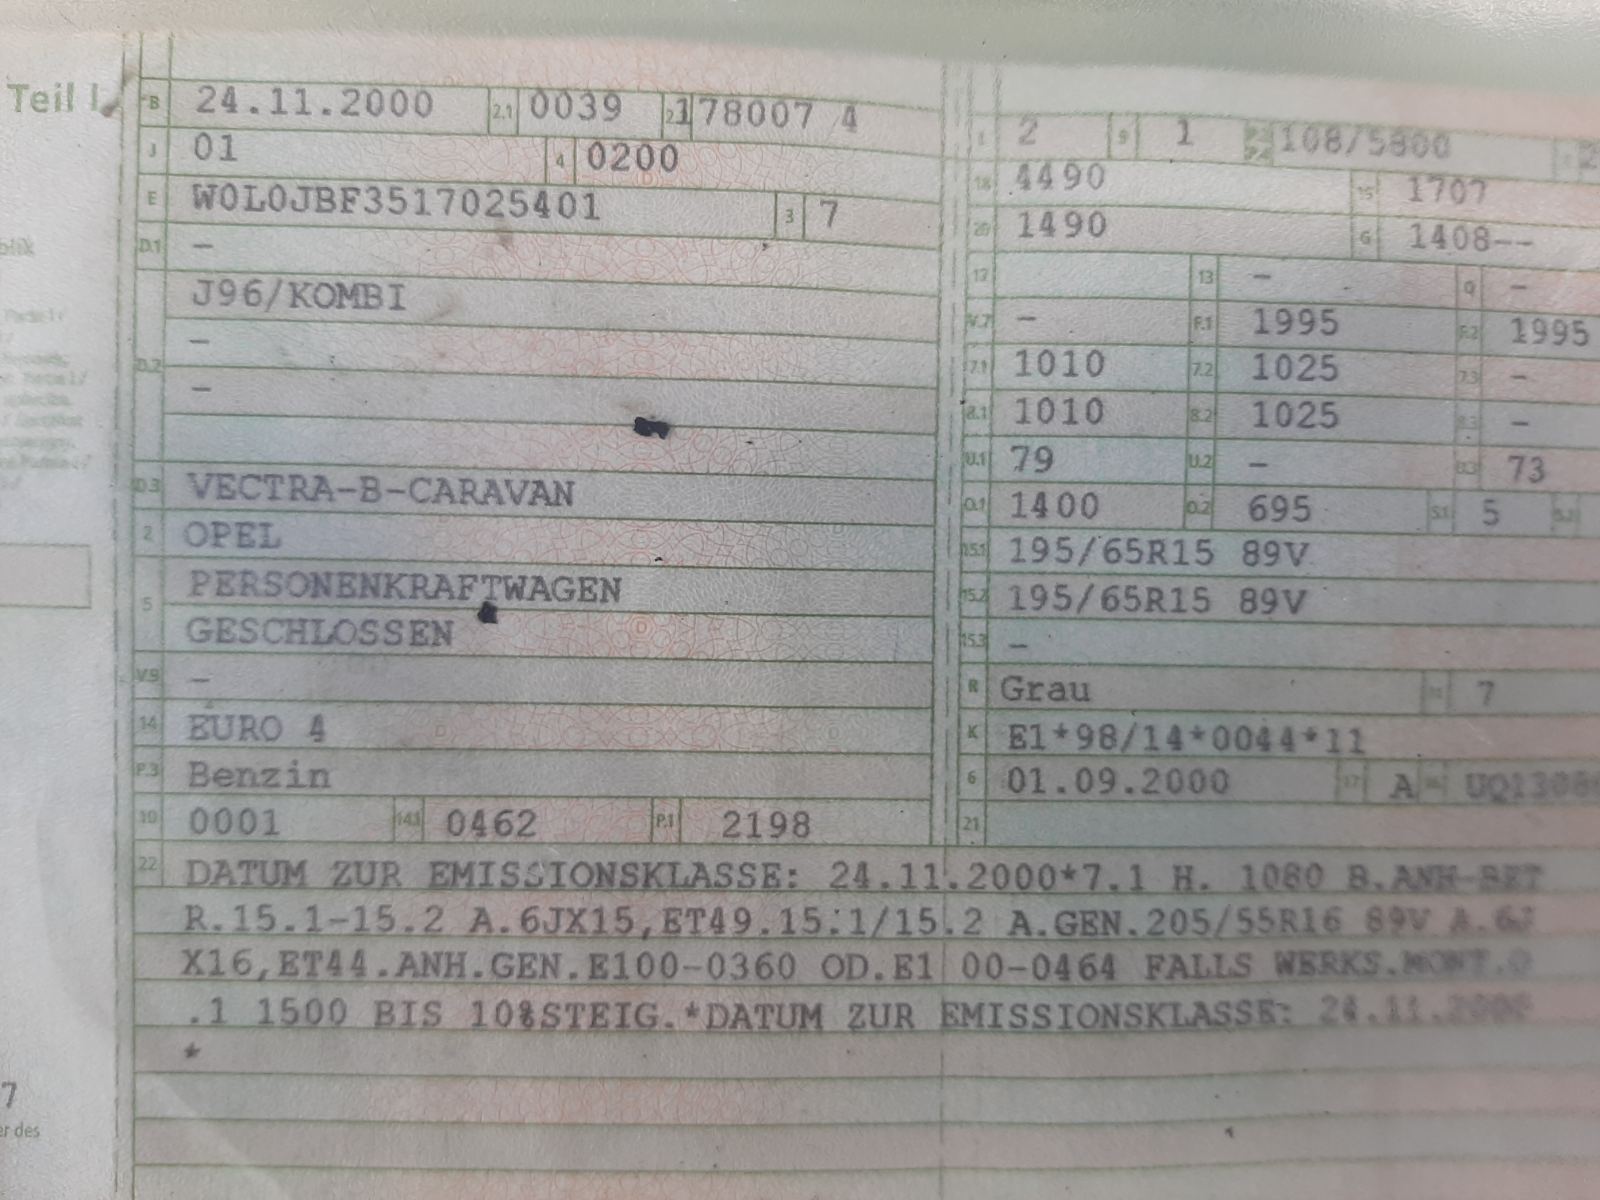 Teil I
B 24.11.2000 2.1 0039 178007 4
J 01 4 0200
E W0L0JBF3517025401 3 7
D.1 –
J96/KOMBI
–
D.2
–
D.3 VECTRA-B-CARAVAN
2 OPEL
PERSONENKRAFTWAGEN
5
GESCHLOSSEN
V.9 –
14 EURO 4
P.3 Benzin
10 0001 14.1 0462 P.1 2198
L 2 9 1 108/5800
18 4490 19 1707
20 1490 G 1408--
12 13 – Q –
V.7 – F.1 1995 F.2 1995
7.1 1010 7.2 1025 7.3 –
8.1 1010 8.2 1025 8.3 –
U.1 79 U.2 – U.3 73
O.1 1400 O.2 695 S.1 5 S.2
15.1 195/65R15 89V
15.2 195/65R15 89V
15.3 –
R Grau 11 7
K E1*98/14*0044*11
6 01.09.2000 17 A 16
21
22 DATUM ZUR EMISSIONSKLASSE: 24.11.2000*7.1 H. 1080 B.ANH-BET
R.15.1-15.2 A.6JX15,ET49.15.1/15.2 A.GEN.205/55R16 89V A.6J
X16,ET44.ANH.GEN.E100-0360 OD.E1 00-0464 FALLS WERKS.MONT.O
.1 1500 BIS 10%STEIG.*DATUM ZUR EMISSIONSKLASSE: 24.11.2000
*
7
er des